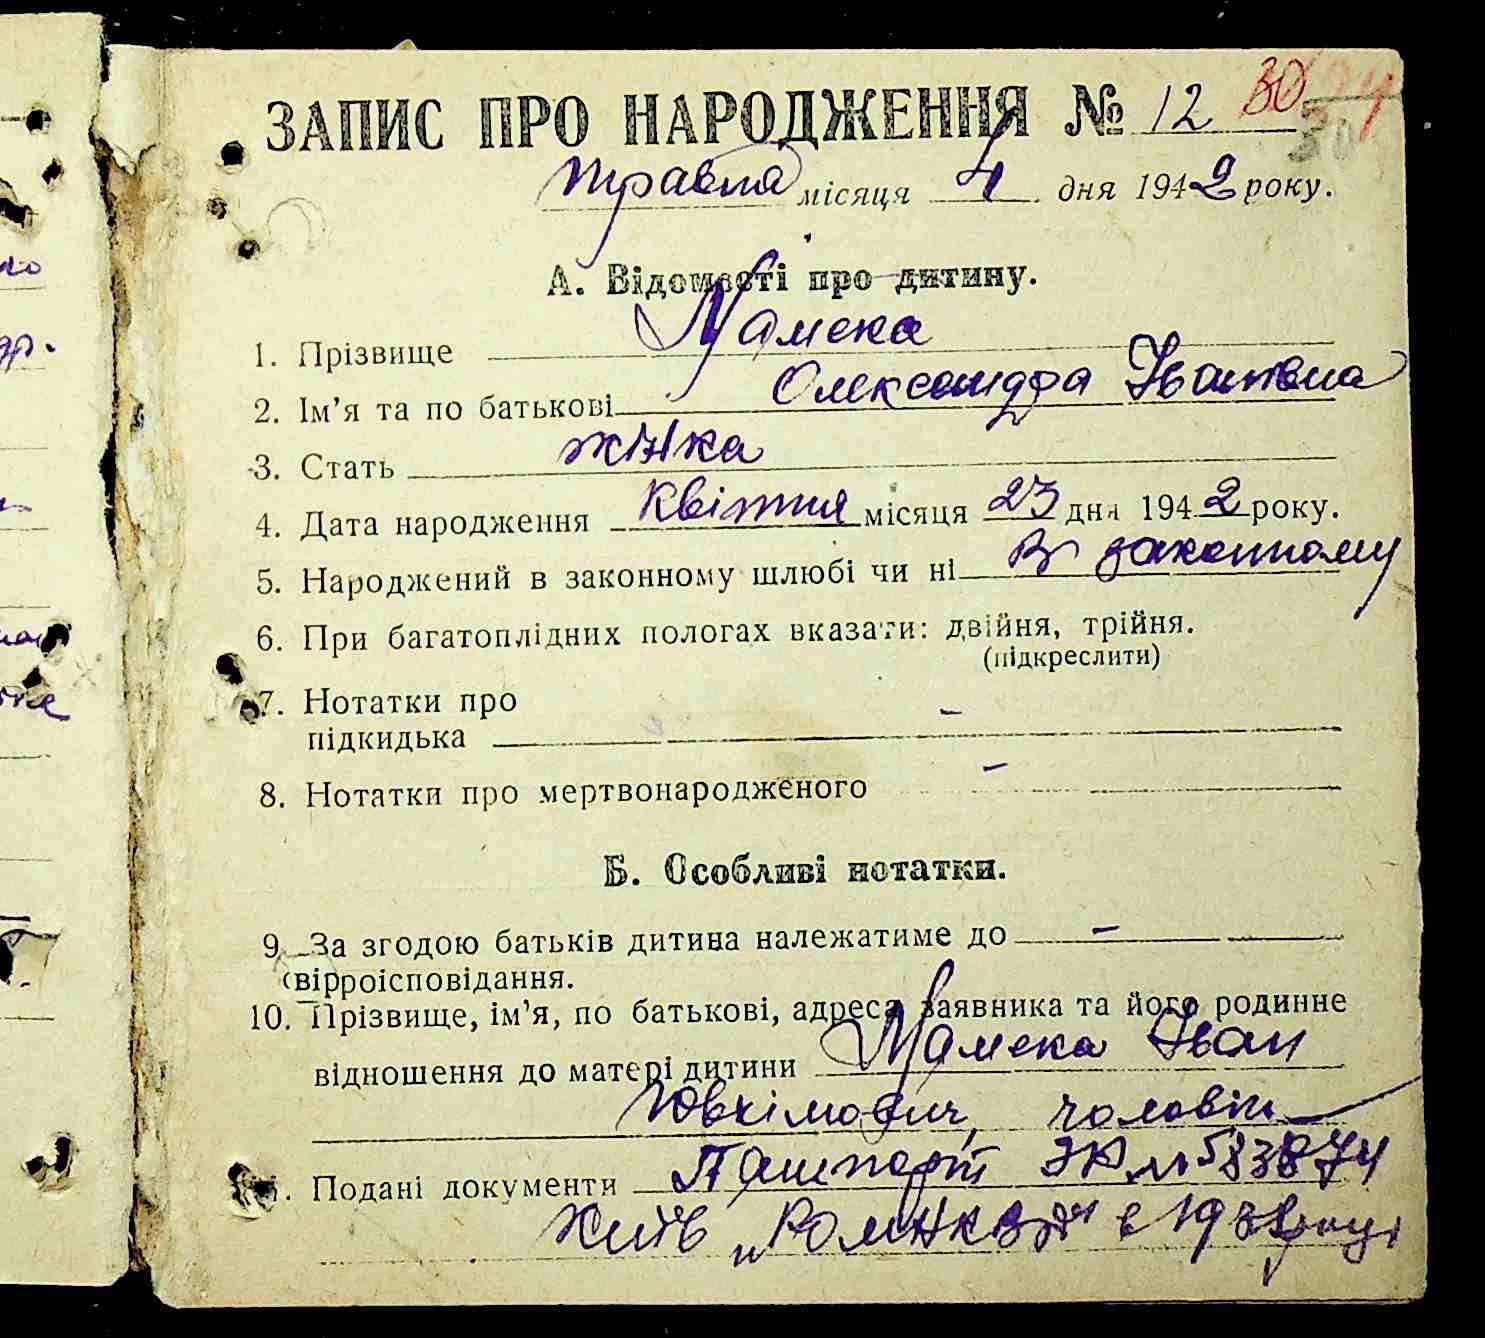 ЗАПИС ПРО НАРОДЖЕННЯ № 12 30
травня місяця 4 дня 1942 року.
А. Відомості про дитину.
1. Прізвище Мамека
2. Ім'я та по батькові Олександра Іванівна
3. Стать жінка
4. Дата народження квітня місяця 23 дня 1942 року.
5. Народжений в законному шлюбі чи ні В законному
6. При багатоплідних пологах вказати: двійня, трійня.
(підкреслити)
7. Нотатки про
підкидька –
8. Нотатки про мертвонародженого –
Б. Особливі нотатки.
9. За згодою батьків дитина належатиме до –
вірроісповідання.
10. Прізвище, ім'я, по батькові, адреса заявника та його родинне
відношення до матері дитини Мамека Іван
Ювхімович, чоловік
11. Подані документи Пашпорт № 583874
Київ в року